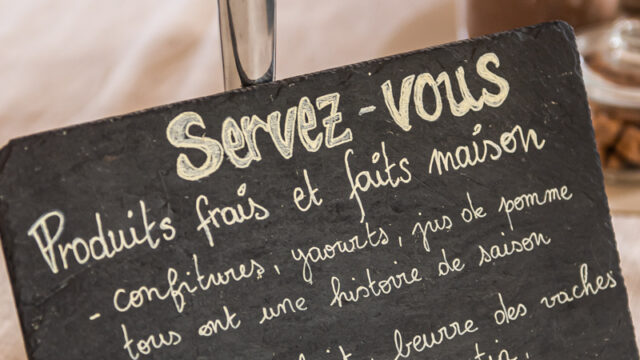 Servez-vous
Produits frais et faits maison
- confitures, yaourts, jus de pomme
tous ont une histoire de saison
beurre des vaches